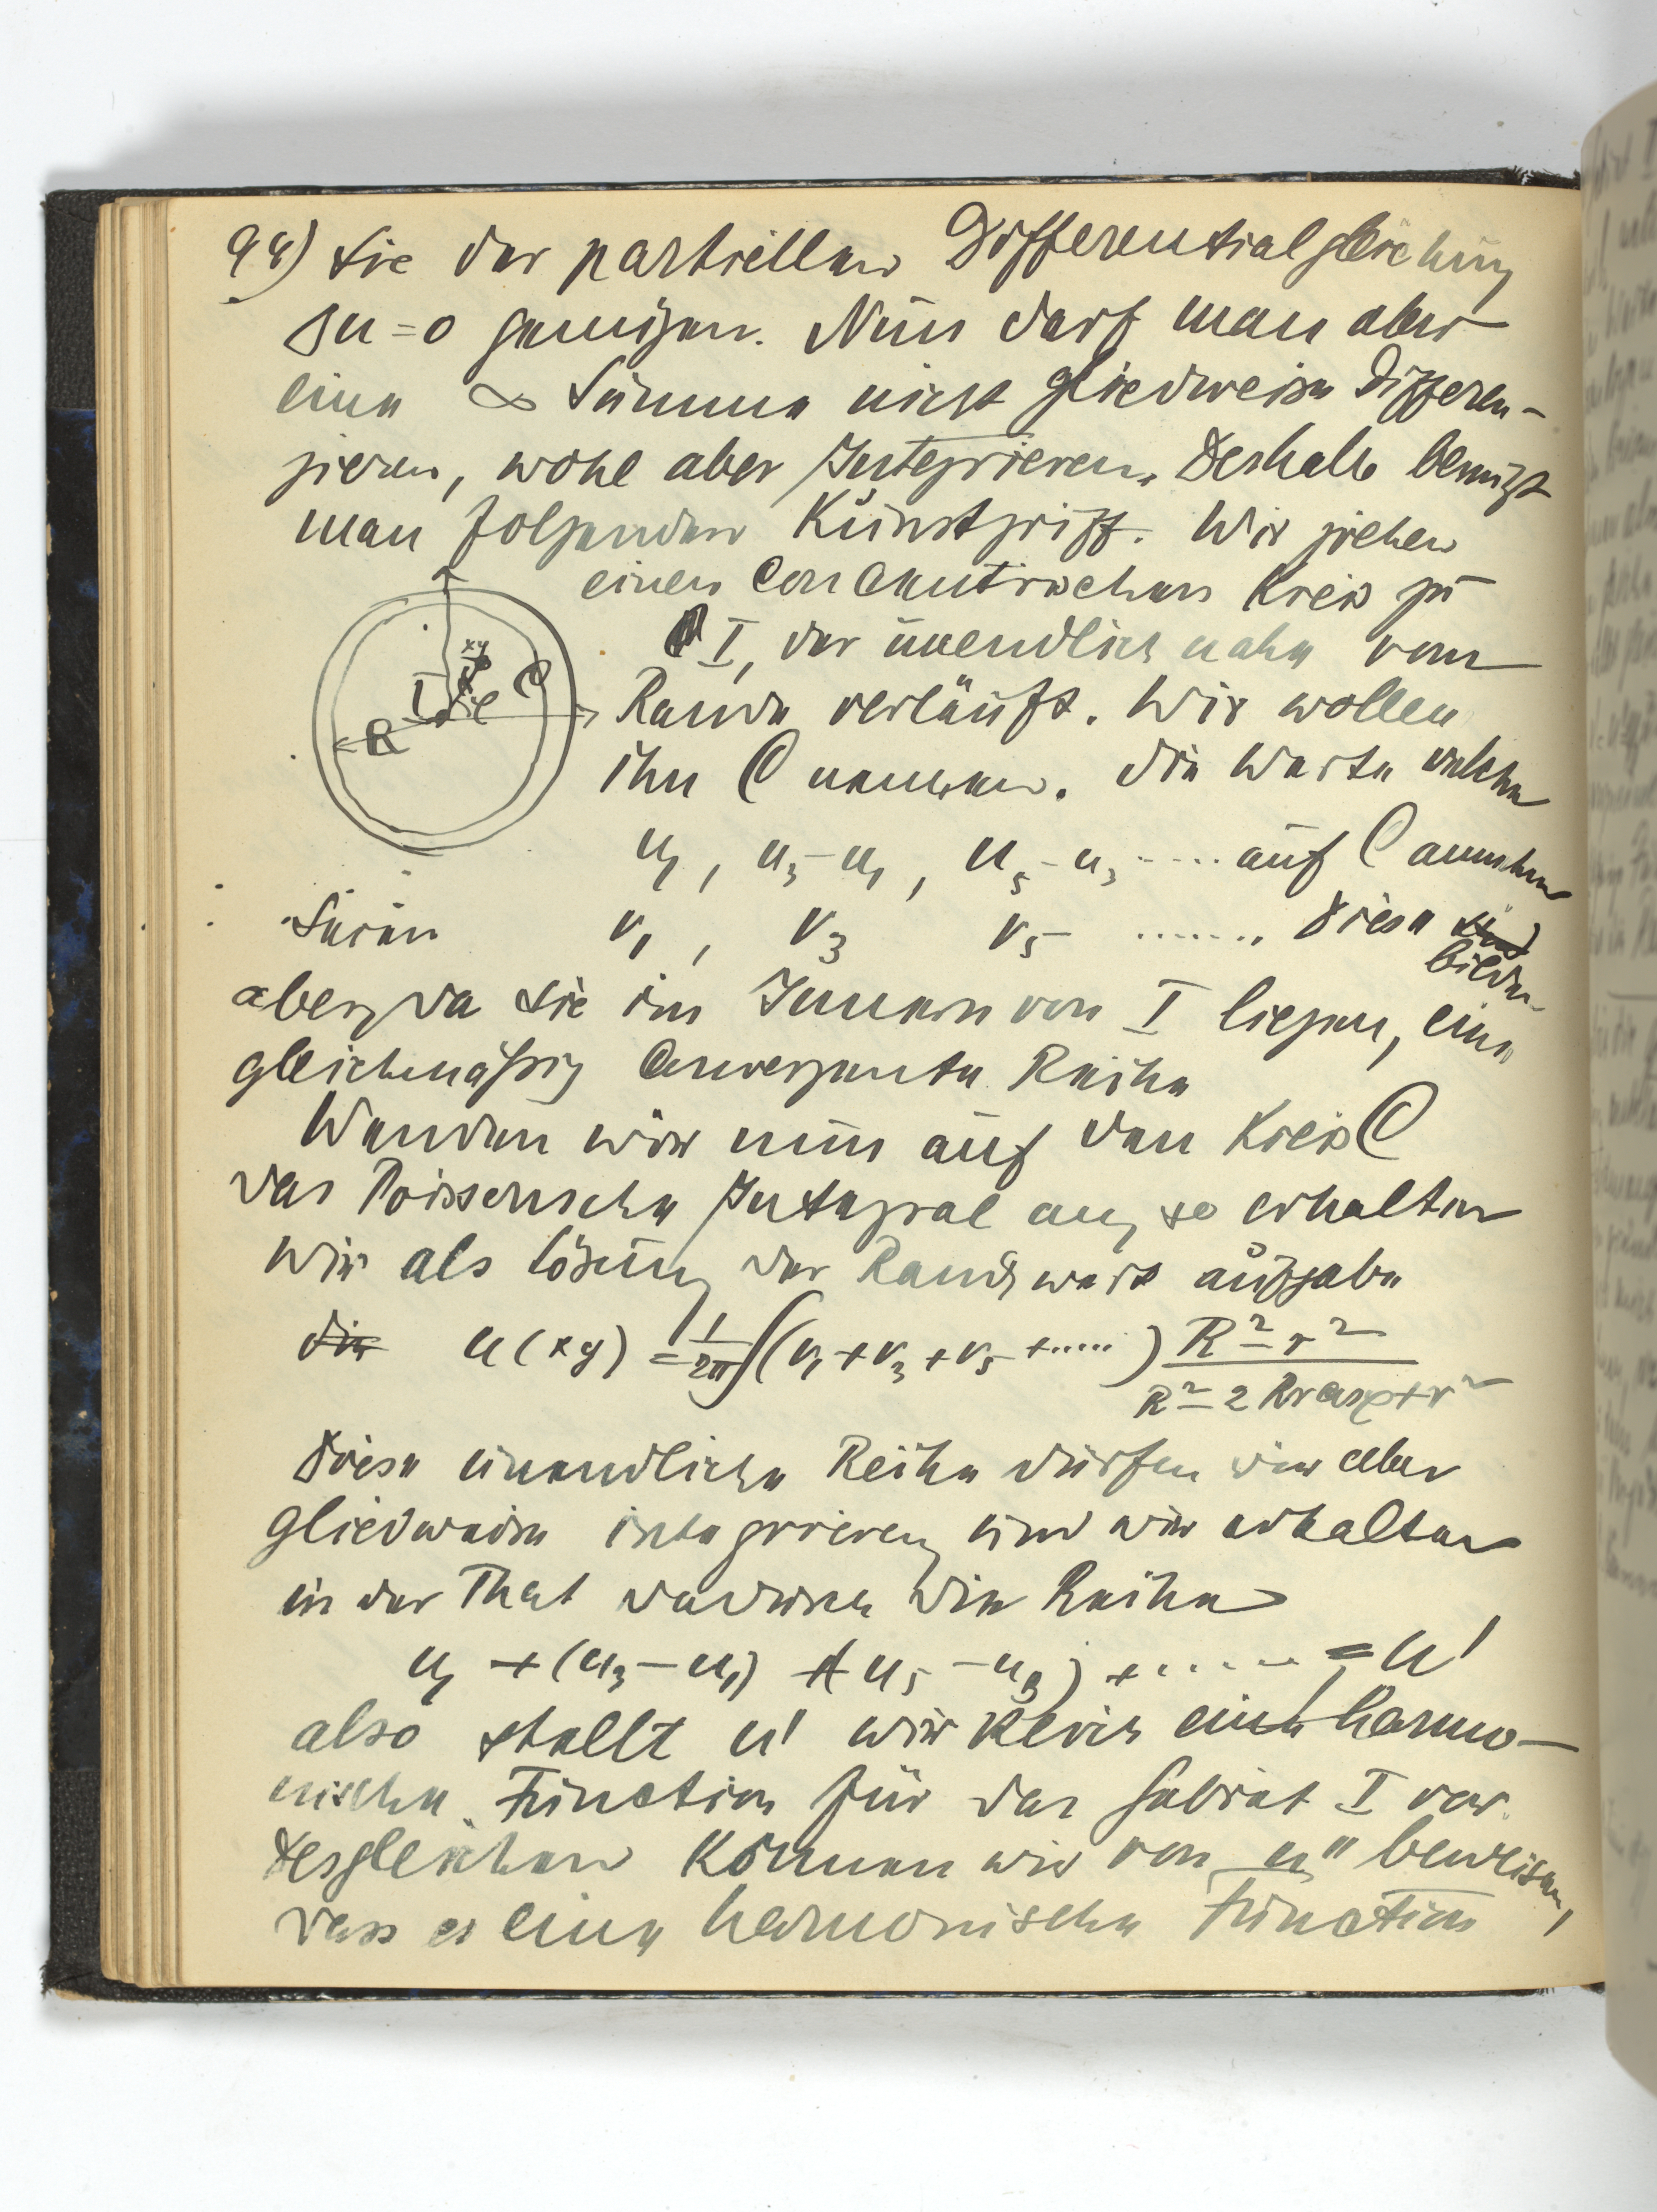 98) sie der partiellen Differentialgleichung
Δu = 0 genügen. Nun darf man aber
eine ∞ Summe nicht gliedweise Differen-
zieren, wohl aber Integrieren. Deshalb benutzt
man folgenden Kunstgriff. Wir ziehen
einen Concentrischen Kreis zu
I, der unendlich nahe vom
Rande verläuft. Wir wollen
ihn C nennen. Die Werte welche
u₁, u₃ - u₁, u₅ - u₃ ..... auf C annehmen
Seien v₁, v₃ v₅ ....... Diese sind
bilden
aber, da sie im Innern von I liegen, eine
gleichmäßig Convergente Reihe
Wenden wir nun auf den Kreis C
das Poissonsche Integral an, so erhalten
wir als Lösung der Randwert aufgabe
die u(xy) = 1/2π ∫(v₁ + v₃ + v₅ + .....) R² - r² / R² - 2Rr cos φ + r²
Diese unendliche Reihe dürfen wir aber
gliedweise integrieren, und wir erhalten
in der That dadurch die Reihe
u₁ + (u₃ - u₁) + (u₅ - u₃) + ....... = u'
also stellt u' wirklich eine harmo-
nische Function für das Gebiet I vor.
Desgleichen können wir von u" beweisen,
dass es eine harmonische Function